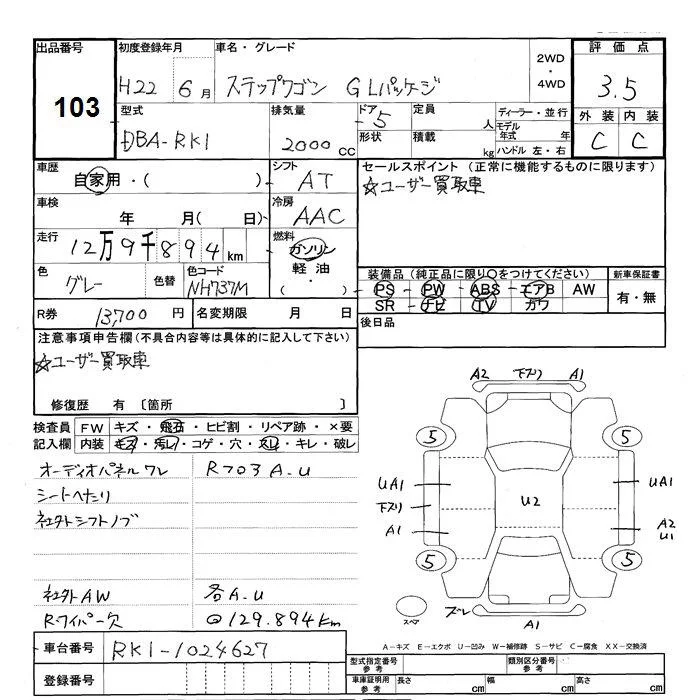 出品番号 初度登録年月 車名・グレード 評価点
103 H22 6月 ステップワゴン GLパッケージ 2WD・4WD 3.5
型式 排気量 ドア 定員 ディーラー・並行 外装 内装
DBA-RK1 2000cc -5 人 モデル年式 年 C C
形状 積載 kg ハンドル 左・右
車歴 自家用・( ) シフト AT セールスポイント(正常に機能するものに限ります)
☆ユーザー買取車
車検 年 月( 日) 冷房 AAC
走行 12万9千894km 燃料 ガソリン 軽油・( )
色 グレー 色替 色コード NH737M
装備品(純正品に限り○をつけてください) 新車保証書
PS・PW・ABS・エアB AW 有・無
SR・ナビ・TV・カワ
R券 13,700円 名変期限 月 日 後日品
注意事項申告欄(不具合内容等は具体的に記入して下さい)
☆ユーザー買取車
修復歴 有 〔箇所 〕
検査員記入欄 FW キズ・飛石・ヒビ割・リペア跡・×要
内装 キズ・汚レ・コゲ・穴・スレ・キレ・破レ
オーディオパネルワレ R703 A.U
シートヘタリ
社外シフトノブ
社外AW 各A.U
Rワイパー欠 @129.894km
A2 下スリ A1
5 5
UA1 U2 UA1
下スリ
A1 A2
U1
5 5
スペア ズレ A1
A-キズ E-エクボ U-凹み W-補修跡 S-サビ C-腐食 XX-交換済
車台番号 RK1-1024627
登録番号
型式指定番号 参考 類別区分番号 参考
車庫証明用 参考 長さ cm 幅 cm 高さ cm